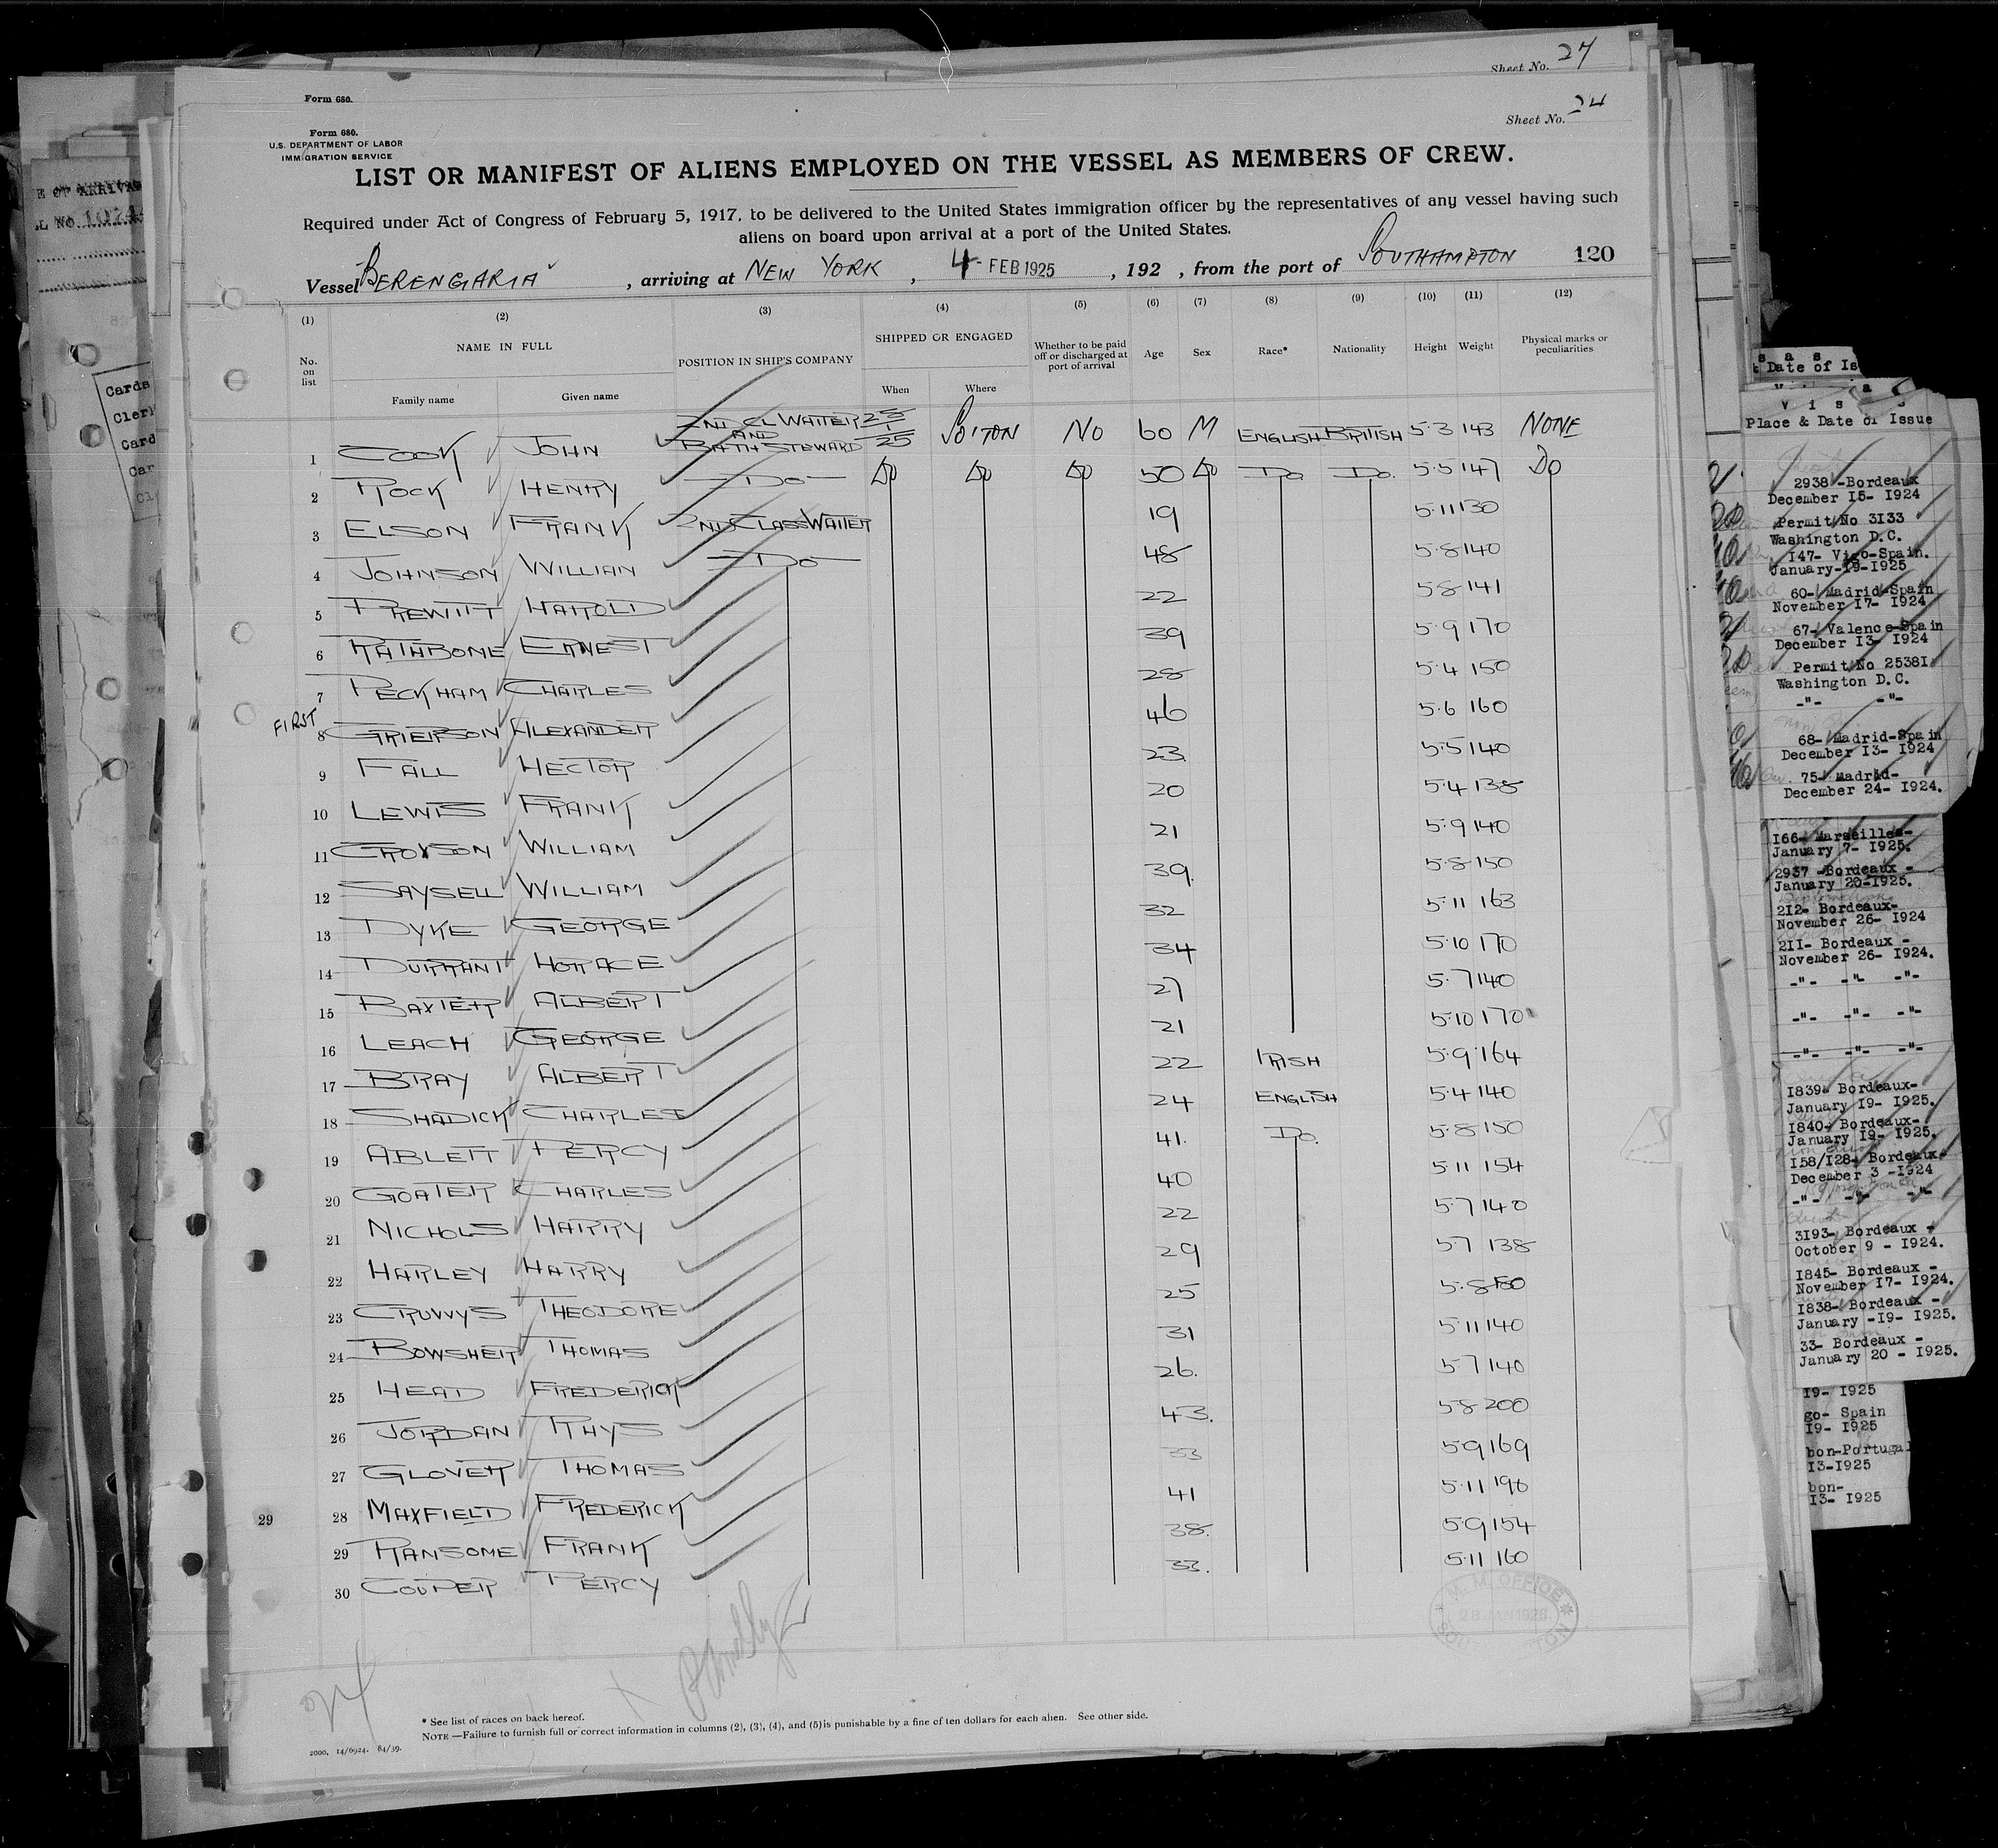 Sheet No. 27
Form 680.
Sheet No. 24
Form 680.
U.S. DEPARTMENT OF LABOR
IMMIGRATION SERVICE
LIST OR MANIFEST OF ALIENS EMPLOYED ON THE VESSEL AS MEMBERS OF CREW.
Required under Act of Congress of February 5, 1917, to be delivered to the United States immigration officer by the representatives of any vessel having such
aliens on board upon arrival at a port of the United States.
Vessel BERENGARIA, arriving at NEW YORK, 4 FEB 1925, 192 , from the port of SOUTHAMPTON 120
(1) (2) (3) (4) (5) (6) (7) (8) (9) (10) (11) (12)
No. on list NAME IN FULL POSITION IN SHIP'S COMPANY SHIPPED OR ENGAGED Whether to be paid off or discharged at port of arrival Age Sex Race* Nationality Height Weight Physical marks or peculiarities
Family name Given name When Where
1 COOK JOHN 2ND CL WAITER AND BATH STEWARD 28/1/25 SO'TON NO 60 M ENGLISH BRITISH 5·3 143 NONE
2 ROCK HENRY DO DO DO DO 50 DO DO DO. 5·5 147 DO
3 ELSON FRANK 2ND CLASS WAITER 19 5·11 130
4 JOHNSON WILLIAN DO 48 5·8 140
5 PREWITT HAROLD 22 5·8 141
6 RATHBONE ERNEST 39 5·9 170
7 PECKHAM CHARLES 28 5·4 150
FIRST
8 GRIERSON ALEXANDER 46 5·6 160
9 FALL HECTOR 23 5·5 140
10 LEWIS FRANK 20 5·4 138
11 CROXSON WILLIAM 21 5·9 140
12 SAYSELL WILLIAM 39. 5·8 150
13 DYKE GEORGE 32 5·11 163
14 DURRANT HORACE 34 5·10 170
15 BAXTER ALBERT 27 5·7 140
16 LEACH GEORGE 21 5·10 170
17 BRAY ALBERT 22 IRISH 5·9 164
18 SHADICK CHARLES 24 ENGLISH 5·4 140
19 ABLETT PERCY 41. DO. 5·8 150
20 GOATER CHARLES 40 5·11 154
21 NICHOLS HARRY 22 5·7 140
22 HARLEY HARRY 29 5·7 138
23 CRUWYS THEODORE 25 5·8
24 BOWSHER THOMAS 31 5·11 140
25 HEAD FREDERICK 26. 5·7 140
26 JORDAN RHYS 43. 5·8 200
27 GLOVER THOMAS 33 5·9 169
29
28 MAXFIELD FREDERICK 41 5·11 196
29 RANSOME FRANK 38. 5·9 154
30 COUPER PERCY 33. 5·11 160
M. M. OFFICE
* See list of races on back hereof.
NOTE —Failure to furnish full or correct information in columns (2), (3), (4), and (5) is punishable by a fine of ten dollars for each alien. See other side.
2000. 14/6924. 84/39.
E OF ARRIVAL
Cards
Cler
Card
Car
Cl
s a s
Date of Is
V i s
Place & Date of Issue
2938 -Bordeaux
December 15- 1924
Permit No 3133
Washington D.C.
147- Vigo-Spain.
January-19-1925
60- Madrid-Spain
November 17- 1924
67- Valence-Spain
December 13- 1924
Permit No 25381
Washington D.C.
-"- -"-
68- Madrid-Spain
December 13- 1924
75- Madrid-
December 24- 1924.
166- Marseilles-
January 7- 1925.
2937 -Bordeaux -
January 20-1925.
212- Bordeaux-
November 26- 1924
211- Bordeaux -
November 26- 1924.
-"- -"- -"-
-"- -"- -"-
-"- -"- -"-
1839- Bordeaux-
January 19- 1925.
1840- Bordeaux-
January 19- 1925.
158/128- Bordeaux-
December 3 -1924
-"- -"- -"-
3193- Bordeaux -
October 9 - 1924.
1845- Bordeaux -
November 17- 1924.
1838- Bordeaux -
January -19- 1925.
33- Bordeaux -
January 20 - 1925.
19- 1925
go- Spain
19- 1925
bon-Portugal
13-1925
bon-
13- 1925